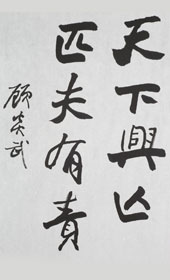 天下興亡
匹夫有責
顧炎武